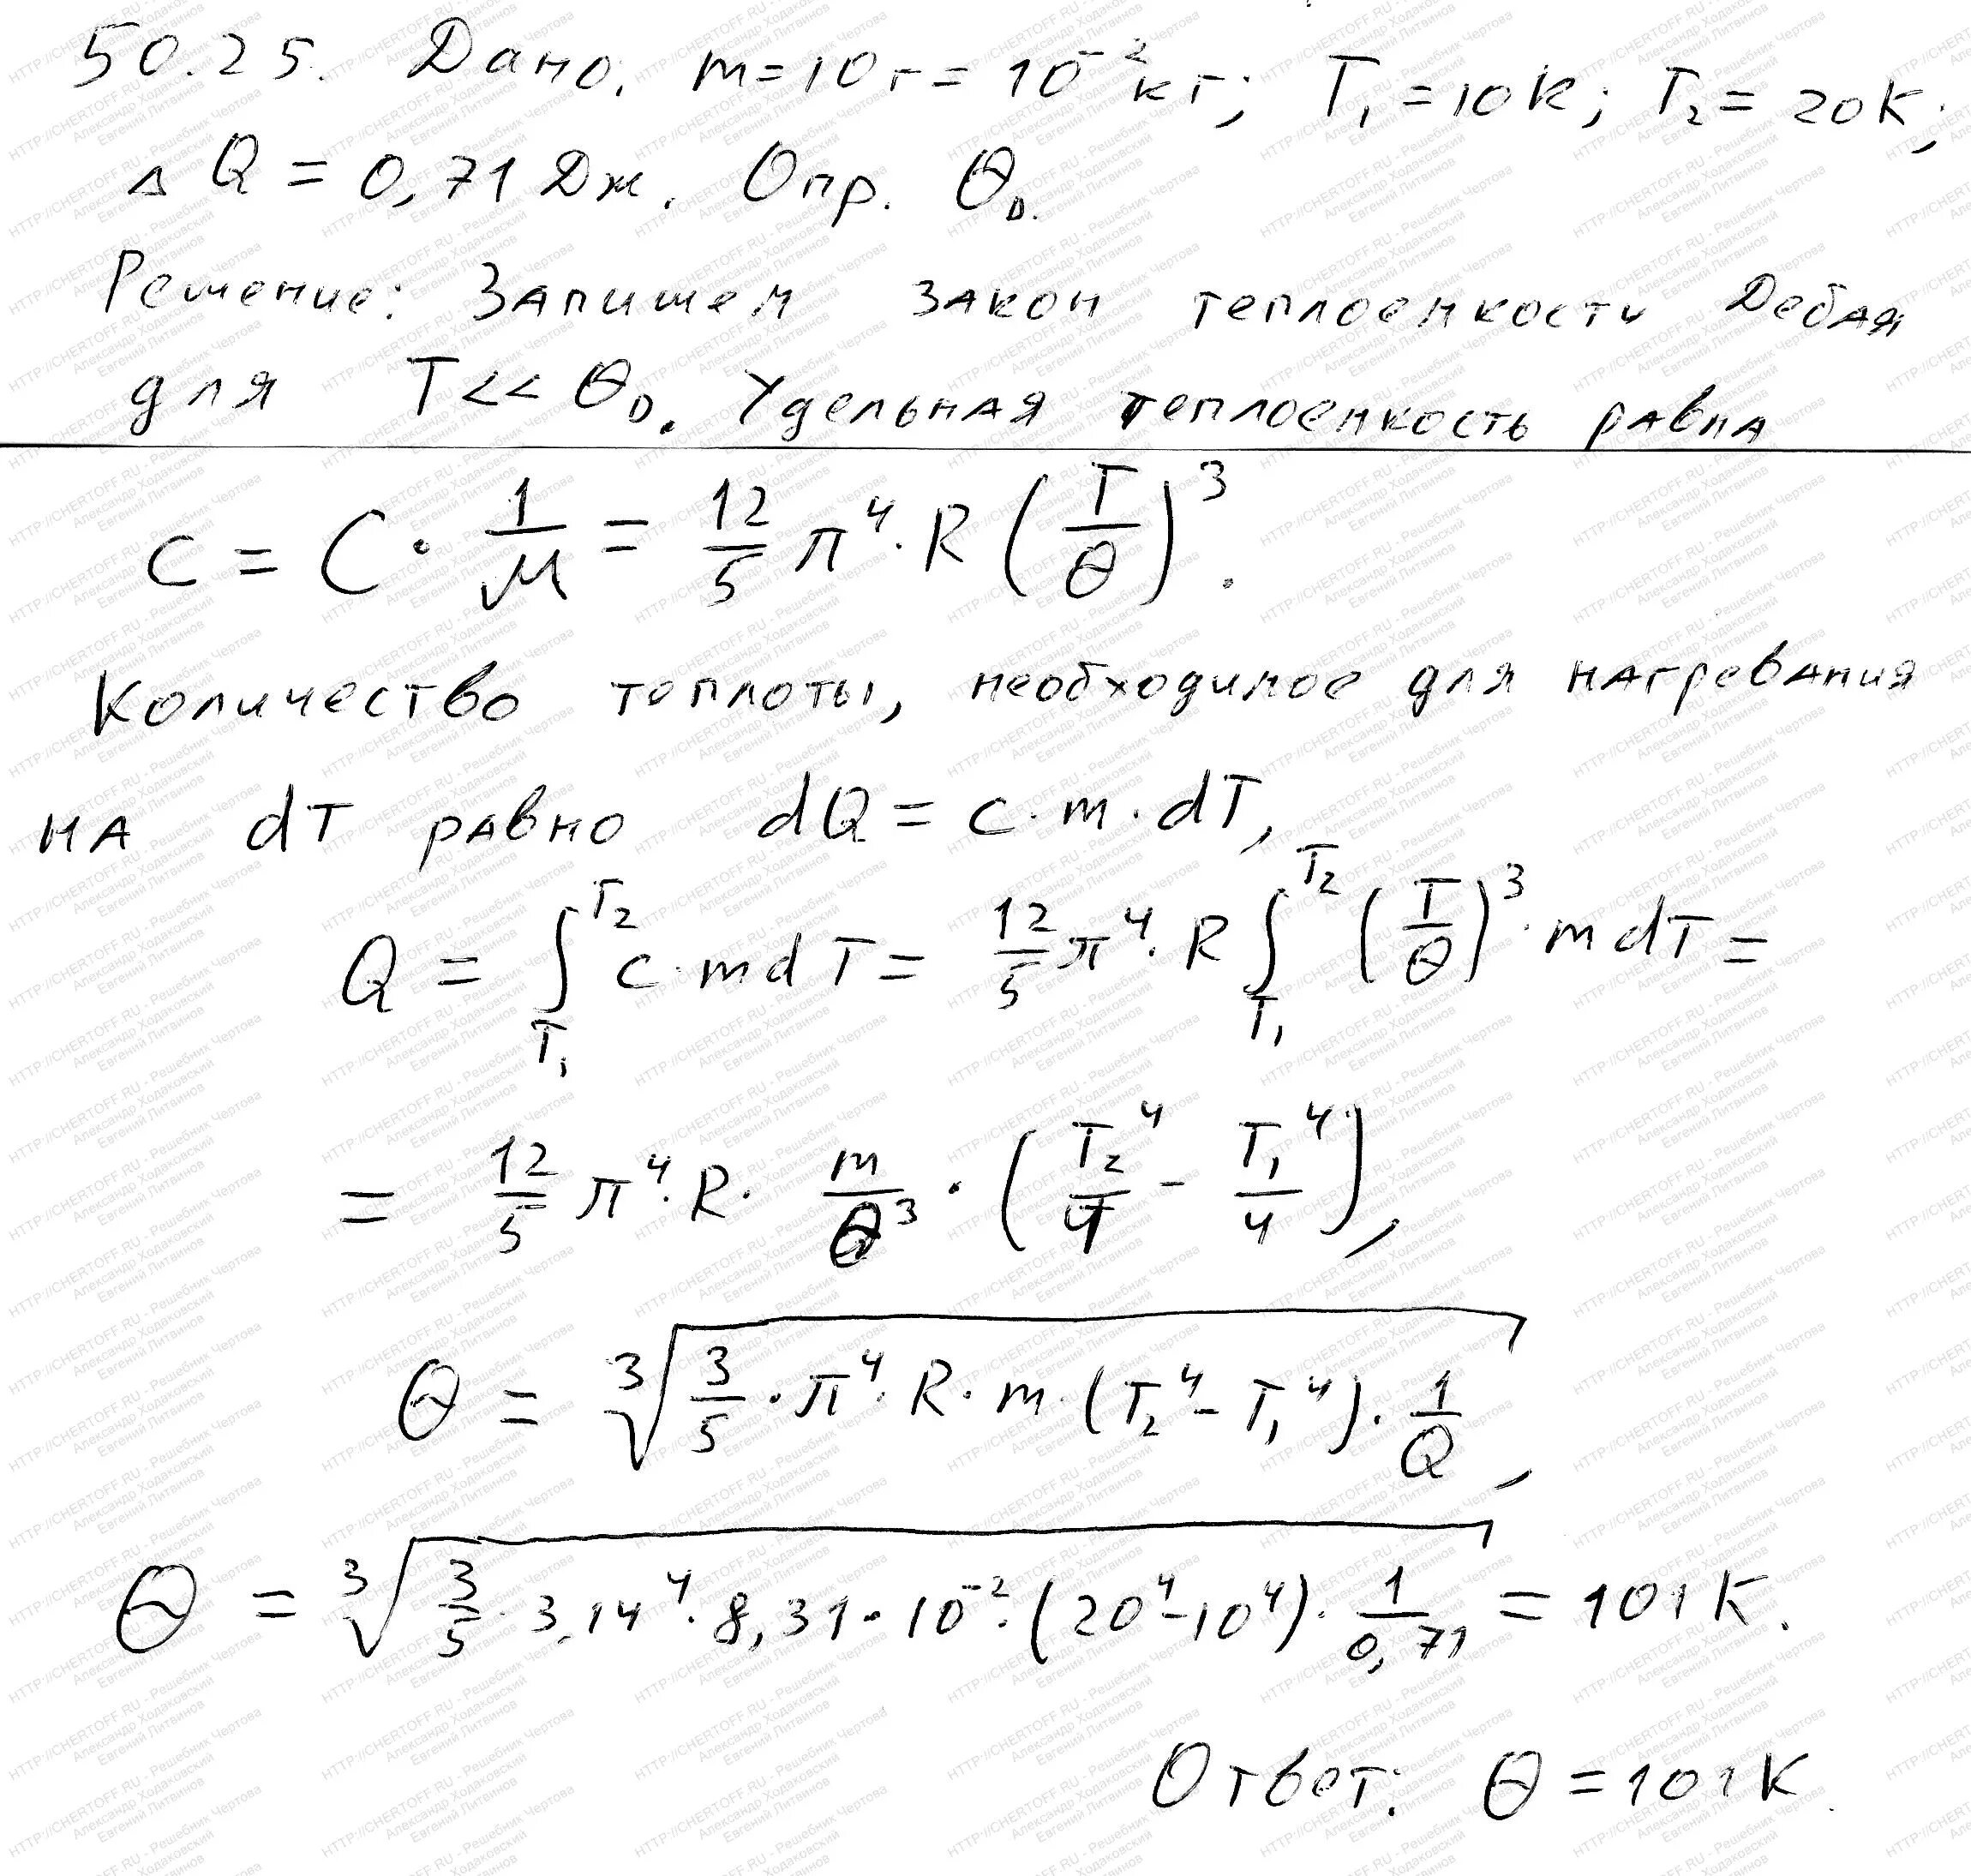 50.25. Дано: m=10г=10⁻²кг; T₁=10К; T₂=20К;
ΔQ=0,71Дж. Опр. θ_D.
Решение: Запишем закон теплоемкости Дебая
для T<<θ_D. Удельная теплоемкость равна
c = C · 1/μ = 12/5 π⁴ · R (T/θ)³.
Количество теплоты, необходимое для нагревания
на dT равно dQ = c · m · dT,
Q = ∫_{T₁}^{T₂} c · m dT = 12/5 π⁴ · R ∫_{T₁}^{T₂} (T/θ)³ · m dT =
= 12/5 π⁴ · R · m/θ³ · (T₂⁴/4 - T₁⁴/4),
θ = ³√(3/5 · π⁴ · R · m · (T₂⁴ - T₁⁴) · 1/Q),
θ = ³√(3/5 · 3,14⁴ · 8,31 · 10⁻² · (20⁴-10⁴) · 1/0,71) = 101К.
Ответ: θ = 101К.
HTTP://CHERTOFF.RU - Решебник Чертова
Александр Ходаковский
Евгений Литвинов